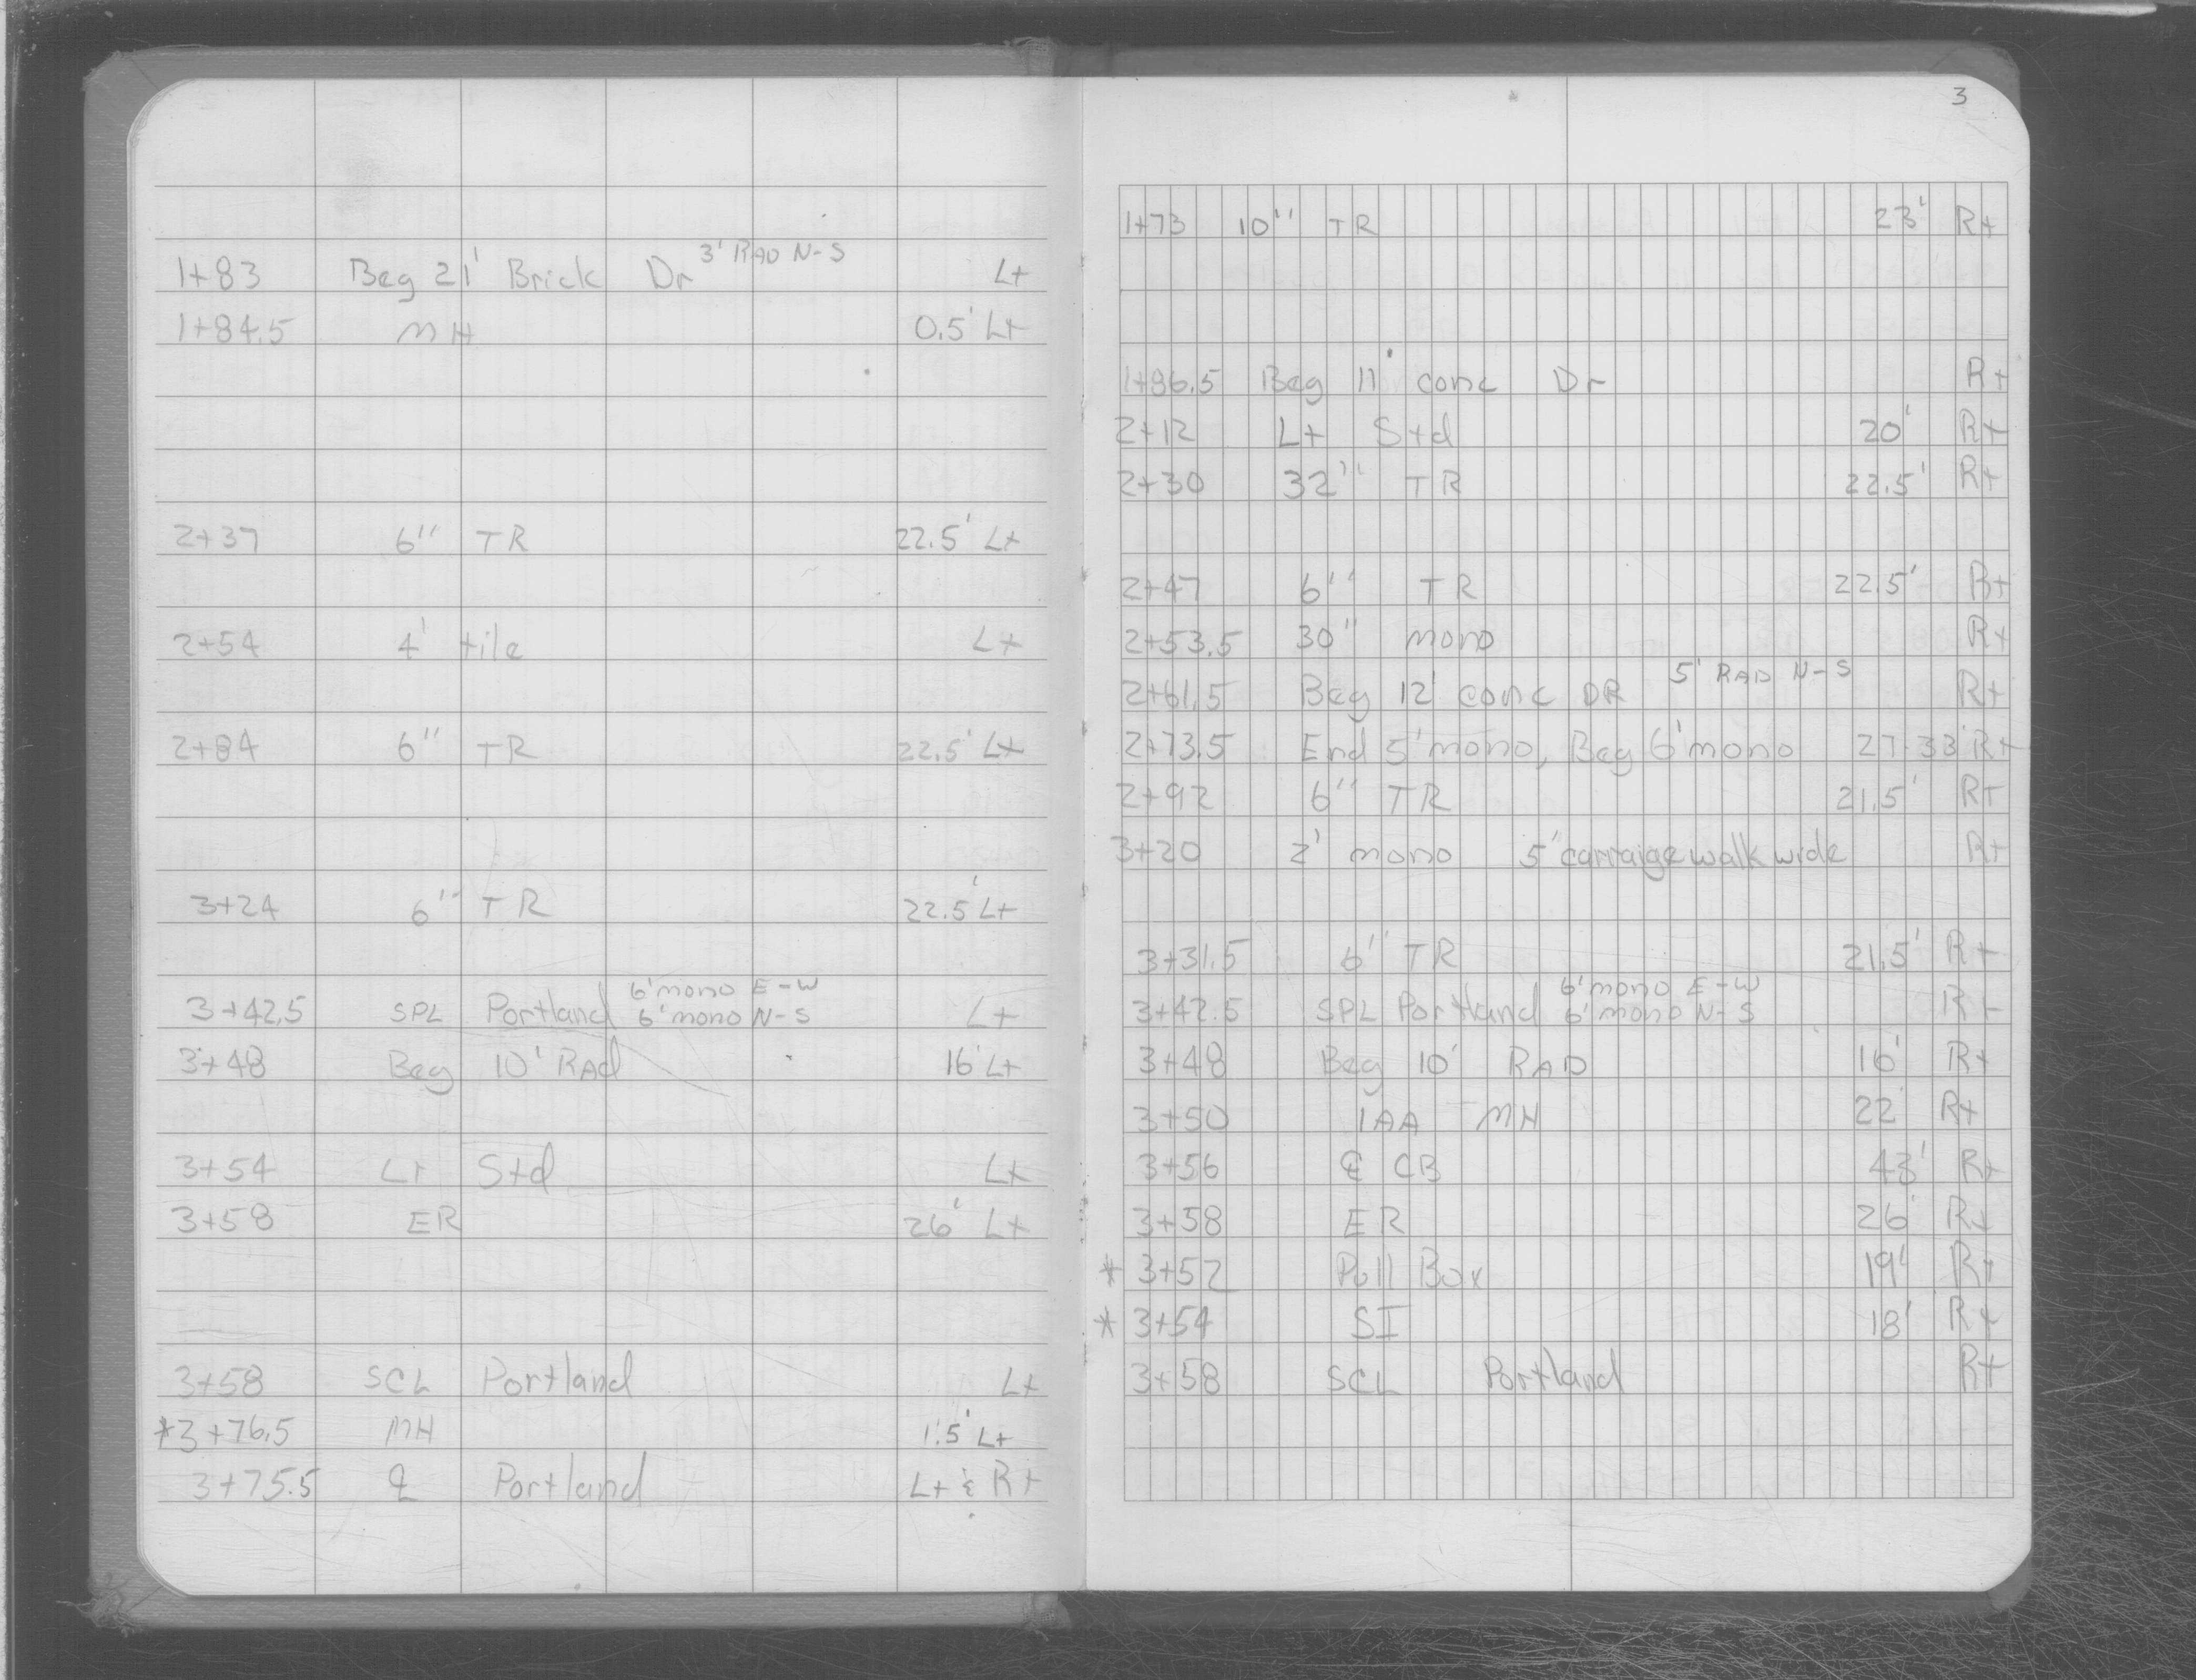 1+83 Beg 21' Brick Dr 3' RAD N-S Lt
1+84.5 MH 0.5' Lt
2+37 6" TR 22.5' Lt
2+54 4' tile Lt
2+84 6" TR 22.5' Lt
3+24 6" TR 22.5' Lt
6' mono E-W
3+42.5 SPL Portland 6' mono N-S Lt
3+48 Beg 10' RAd 16' Lt
3+54 Lt Std Lt
3+58 ER 26' Lt
3+58 SCL Portland Lt
*3+76.5 MH 1.5' Lt
3+75.5 ℄ Portland Lt & Rt
3
1+73 10" TR 23' Rt
1+86.5 Beg 11' conc Dr Rt
2+12 Lt Std 20' Rt
2+30 32" TR 22.5' Rt
2+47 6" TR 22.5' Rt
2+53.5 30" mono Rt
2+61.5 Beg 12' conc DR 5' RAD N-S Rt
2+73.5 End 5' mono, Beg 6' mono 27-33' Rt
2+92 6" TR 21.5' Rt
3+20 2' mono 5' carraige walk wide Rt
3+31.5 6" TR 21.5' Rt
6' mono E-W
3+42.5 SPL Portland 6' mono N-S Rt
3+48 Beg 10' RAD 16' Rt
3+50 IAA MH 22' Rt
3+56 ℄ CB 43' Rt
3+58 ER 26' Rt
* 3+52 Pull Box 19' Rt
* 3+54 SI 18' Rt
3+58 SCL Portland Rt